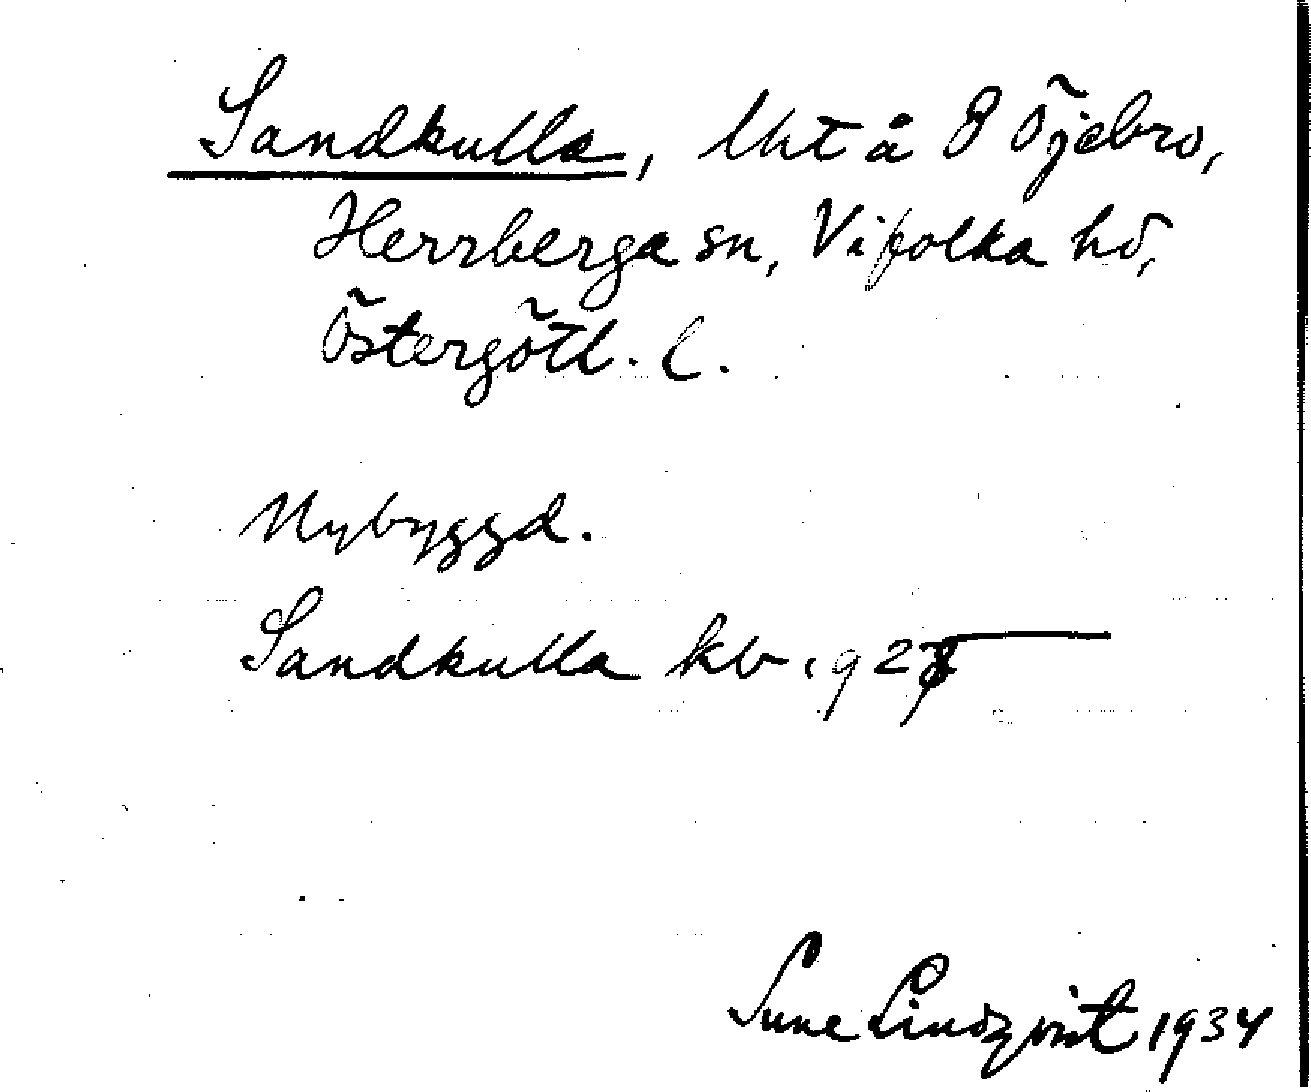 Sandkulla, lht å 8 Öjebro,
Herrberga sn, Vifolka hd,
Östergötl. l.
Nybyggd.
Sandkulla kb. 192
Sune Lindqvist 1934